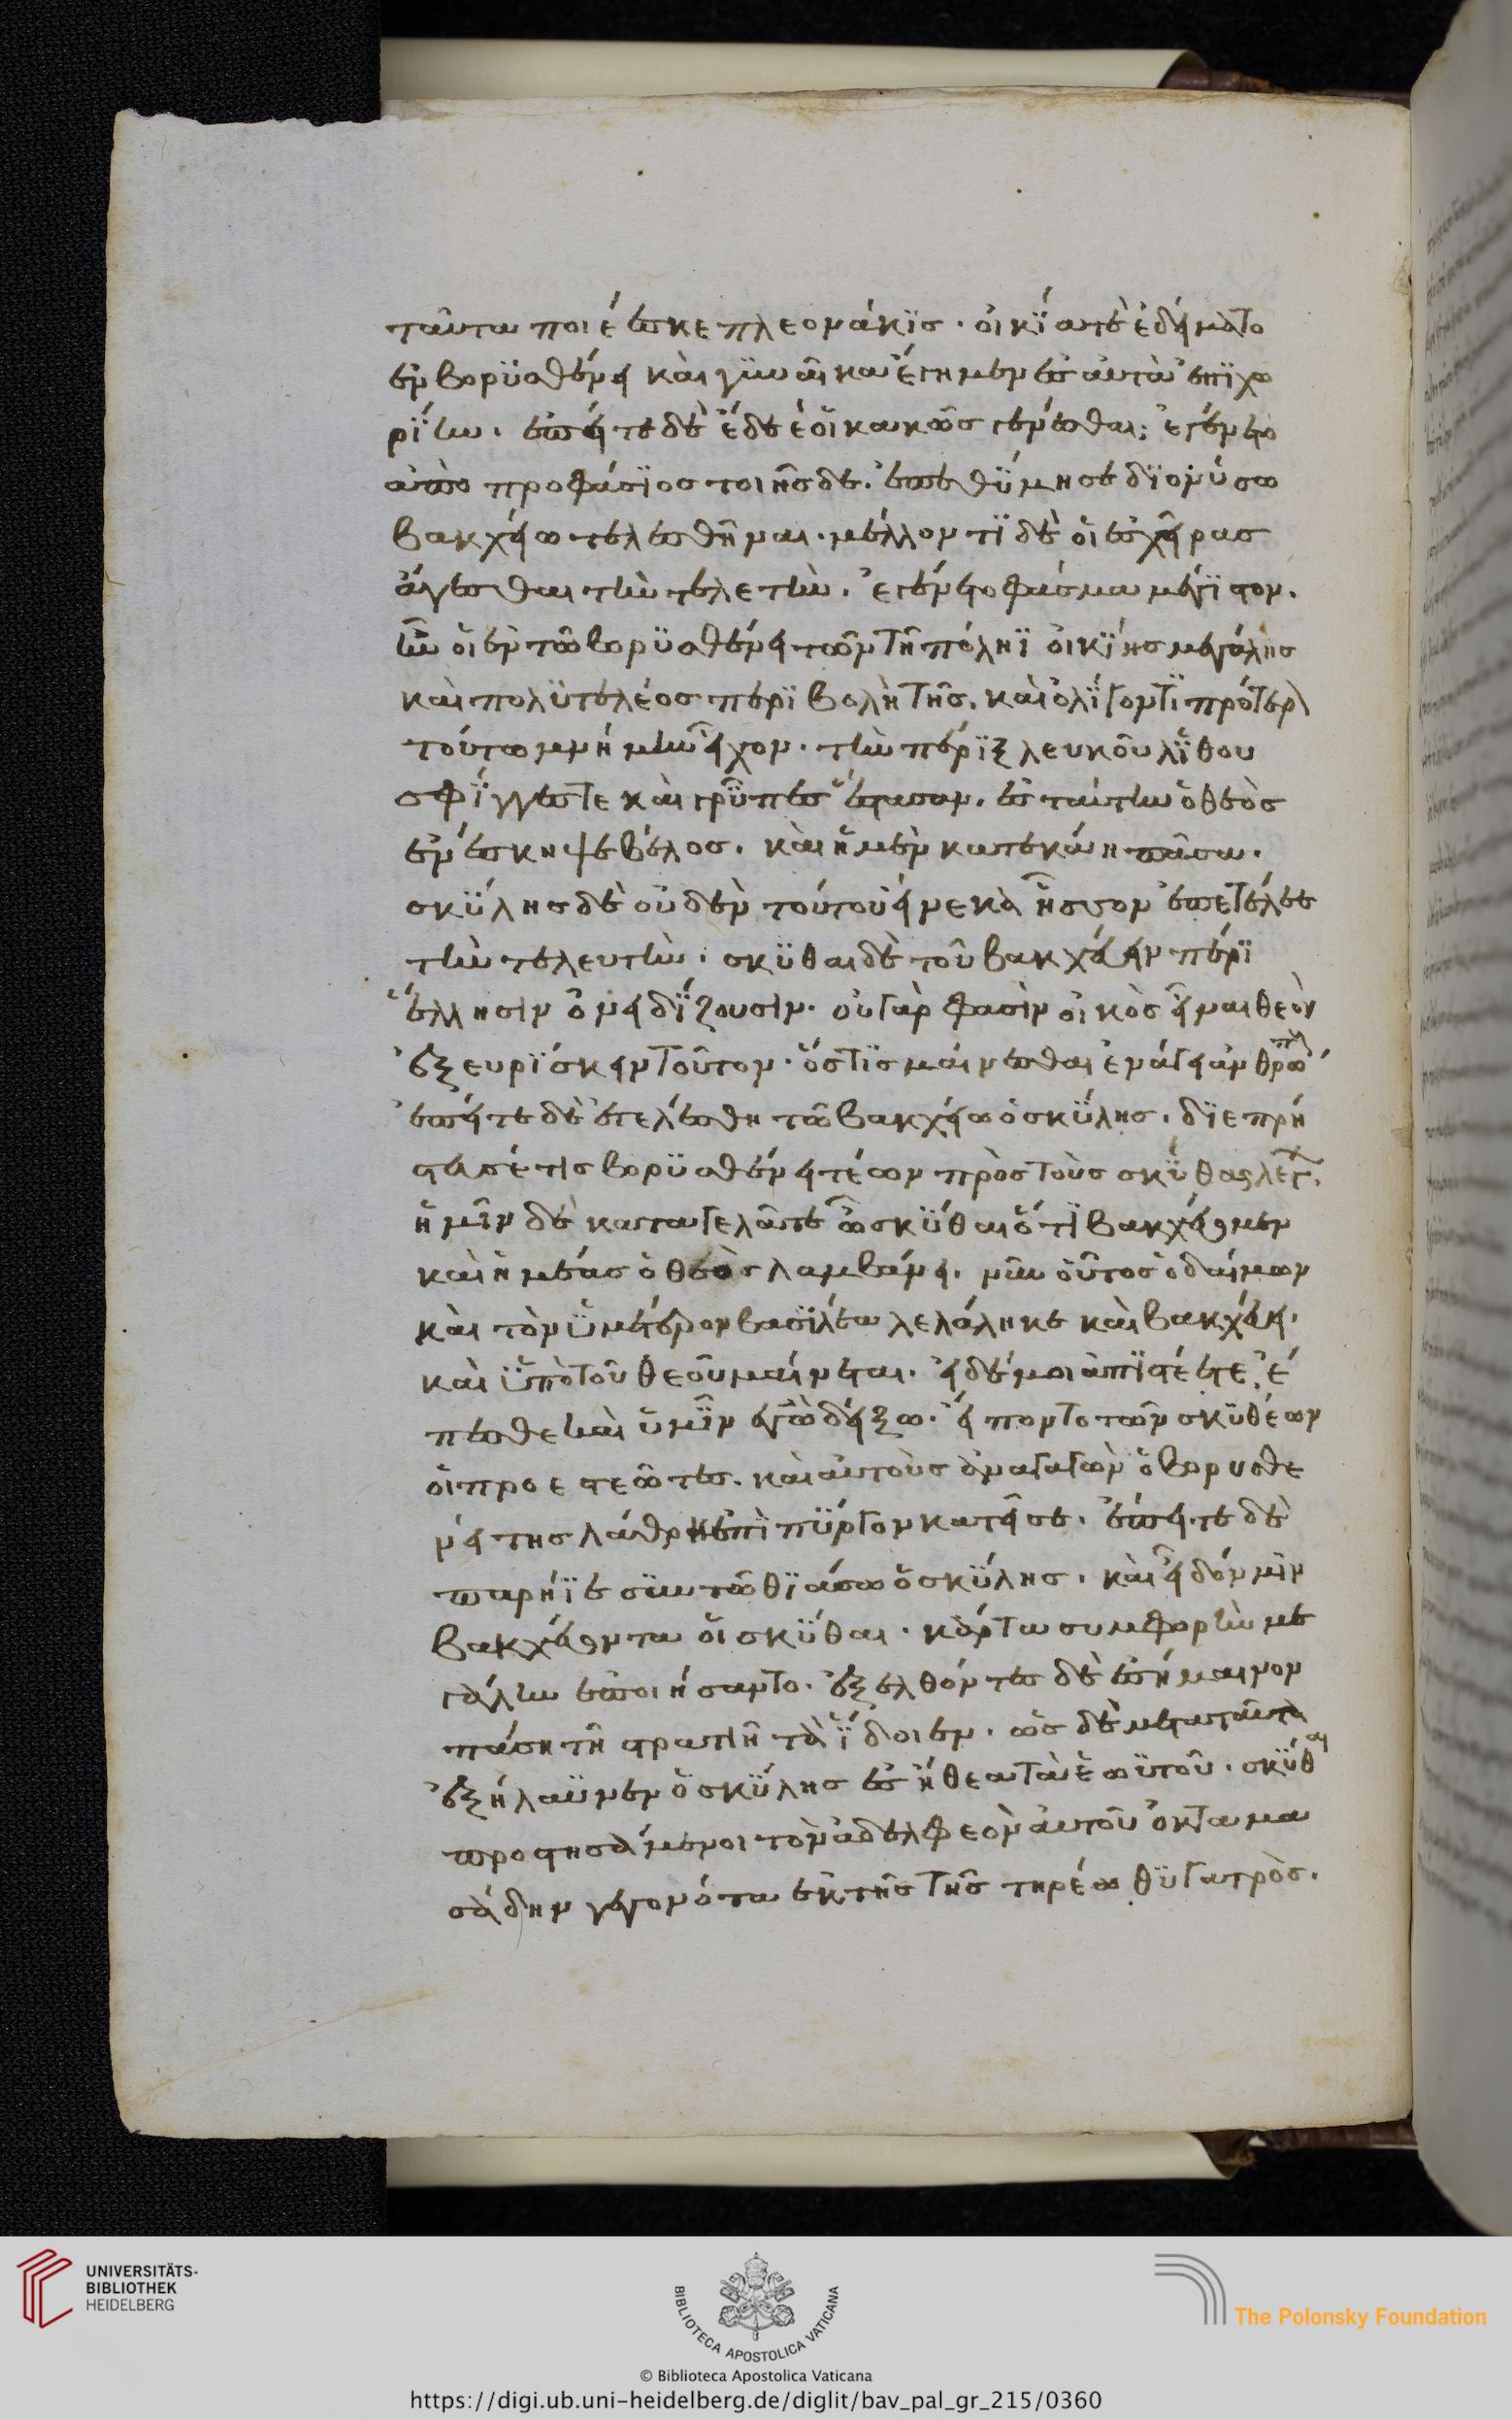 ταῦτα ποιέεσκε πλεονάκϊσ. οἰκΐα τὲ ἐδείματο
ἐν βορϋσθένει καὶ γϋναῖκα ἔγημεν ἐσ αὐτὰ ἐπϊχω
ρΐην. ἐπεί τε δὲ ἔδεέ οἱ κακῶσ γενέσθαι; ἐγένετο
ἀπὸ προφάσϊοσ τοιῆσδε. ἐπεθΰμησε δϊονύσω
βακχείω τελεσθῆναι. μέλλοντϊ δὲ οἱ ἐσ χεῖρασ
ἄγεσθαι τὴν τελετὴν. ἐγένετο φάσμα μέγϊστον.
ἦν οἱ ἐν τῶ βορϋσθένει τῶν τῆ πόληϊ οἰκΐησ μεγάλησ
καὶ πολϋτελέοσ περϊβολὴ τῆσ. καὶ ὀλΐγον τϊ πρότερον
τούτω μνήμην εἶχον. τὴν πέρϊξ λευκοῦ λΐθου
σφΐγγεσ τε καὶ γρῦπεσ ἕστασαν. ἐσ ταύτην ὁ θεὸσ
ἐνέσκηψε βέλοσ. καὶ ἡ μὲν κατεκάη πᾶσα.
σκΰλησ δὲ οὐδὲν τούτου εἵνεκα ἧσσον ἐπετέλεσε
τὴν τελευτὴν. σκϋθαι δὲ τοῦ βακχεύειν πέρϊ
ἕλλησιν ὀνειδΐζουσιν. οὐ γάρ φασὶν οἰκὸσ εἶναι θεὸν
ἐξευρϊσκειν τοῦτον. ὅστϊσ μαίνεσθαι ἐνάγει ἀνθρώπ
ἐπεί τε δὲ ἐτελέσθη τῶ βακχείω ὁ σκΰλησ. δϊεπρή
στευσέ τισ βορϋσθένειτέων πρὸσ τοὺσ σκΰθας λέγ.
ἡμῖν δὲ καταγελᾶτε ὦ σκΰθαι ὅτϊ βακχεύομεν
καὶ ἡμέασ ὁ θεὸσ λαμβάνει. νῦν οὗτοσ ὁ δαίμων
καὶ τὸν ὑμέτερον βασϊλέα λελάληκε καὶ βακχεύει.
καὶ ϋπὸ τοῦ θεοῦ μαίνεται. εἰ δέ μοι ἀπϊστέετε, ἕ
πεσθε καὶ ὑμῖν ἐγὼ δείξω. εἵποντο τῶν σκϋθέων
οἱ προεστεῶτεσ. καὶ αὐτοὺσ ἀναγαγὼν ὁ βορυσθε
νείτησ λάθρη ἐπὶ πΰργον κατεῖσε. ἐπεί τε δὲ
παρήϊε σϋν τῶ θϊάσω ὁ σκΰλησ. καὶ εἶδόν μιν
βακχεύοντα οἱ σκΰθαι. κάρτα συμφορὴν με
γάλην ἐποιήσαντο. ἐξελθόντεσ δὲ ἐσήμαινον
πάση τῆ στρατιῆ τὰ ΐδοιεν. ὡσ δὲ μετὰ ταῦτα
ἐξήλαϋνεν ὁ σκΰλησ ἐσ ἤθεα τὰ ἑωϋτοῦ. σκΰθαι
προστησάμενοι τὸν ἀδελφεὸν αὐτοῦ ὀκταμα
σάδην γεγονότα ἐκ τῆσ τῆσ τηρέω θϋγατρὸσ.
UNIVERSITÄTS-
BIBLIOTHEK
HEIDELBERG
BIBLIOTECA APOSTOLICA VATICANA
The Polonsky Foundation
© Biblioteca Apostolica Vaticana
https://digi.ub.uni-heidelberg.de/diglit/bav_pal_gr_215/0360